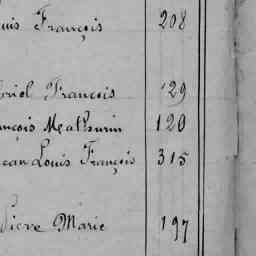 uis François 208
briol François 129
ançois Mathurin 120
ean Louis François 315
Pierre Marie 197